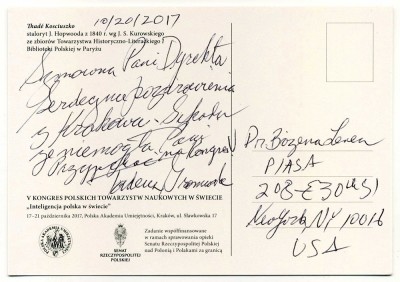 10/20/2017
Thadé Kosciuszko
staloryt J. Hopwooda z 1840 r. wg J. S. Kurowskiego
ze zbiorów Towarzystwa Historyczno-Literackiego /
Biblioteki Polskiej w Paryżu
Szanowna Pani Dyrektor
Serdeczne pozdrowienia
z Krakowa. Szkoda
że niemogła Pani
Przyjechać na Kongres
Tadeusz
V KONGRES POLSKICH TOWARZYSTW NAUKOWYCH W ŚWIECIE
„Inteligencja polska w świecie"
17–21 października 2017, Polska Akademia Umiejętności, Kraków, ul. Sławkowska 17
SENAT
RZECZYPOSPOLITEJ
POLSKIEJ
Zadanie współfinansowane
w ramach sprawowania opieki
Senatu Rzeczypospolitej Polskiej
nad Polonią i Polakami za granicą
Dr. Bożena Leven
PIASA
208-E 30th St
New York, NY 10016
USA